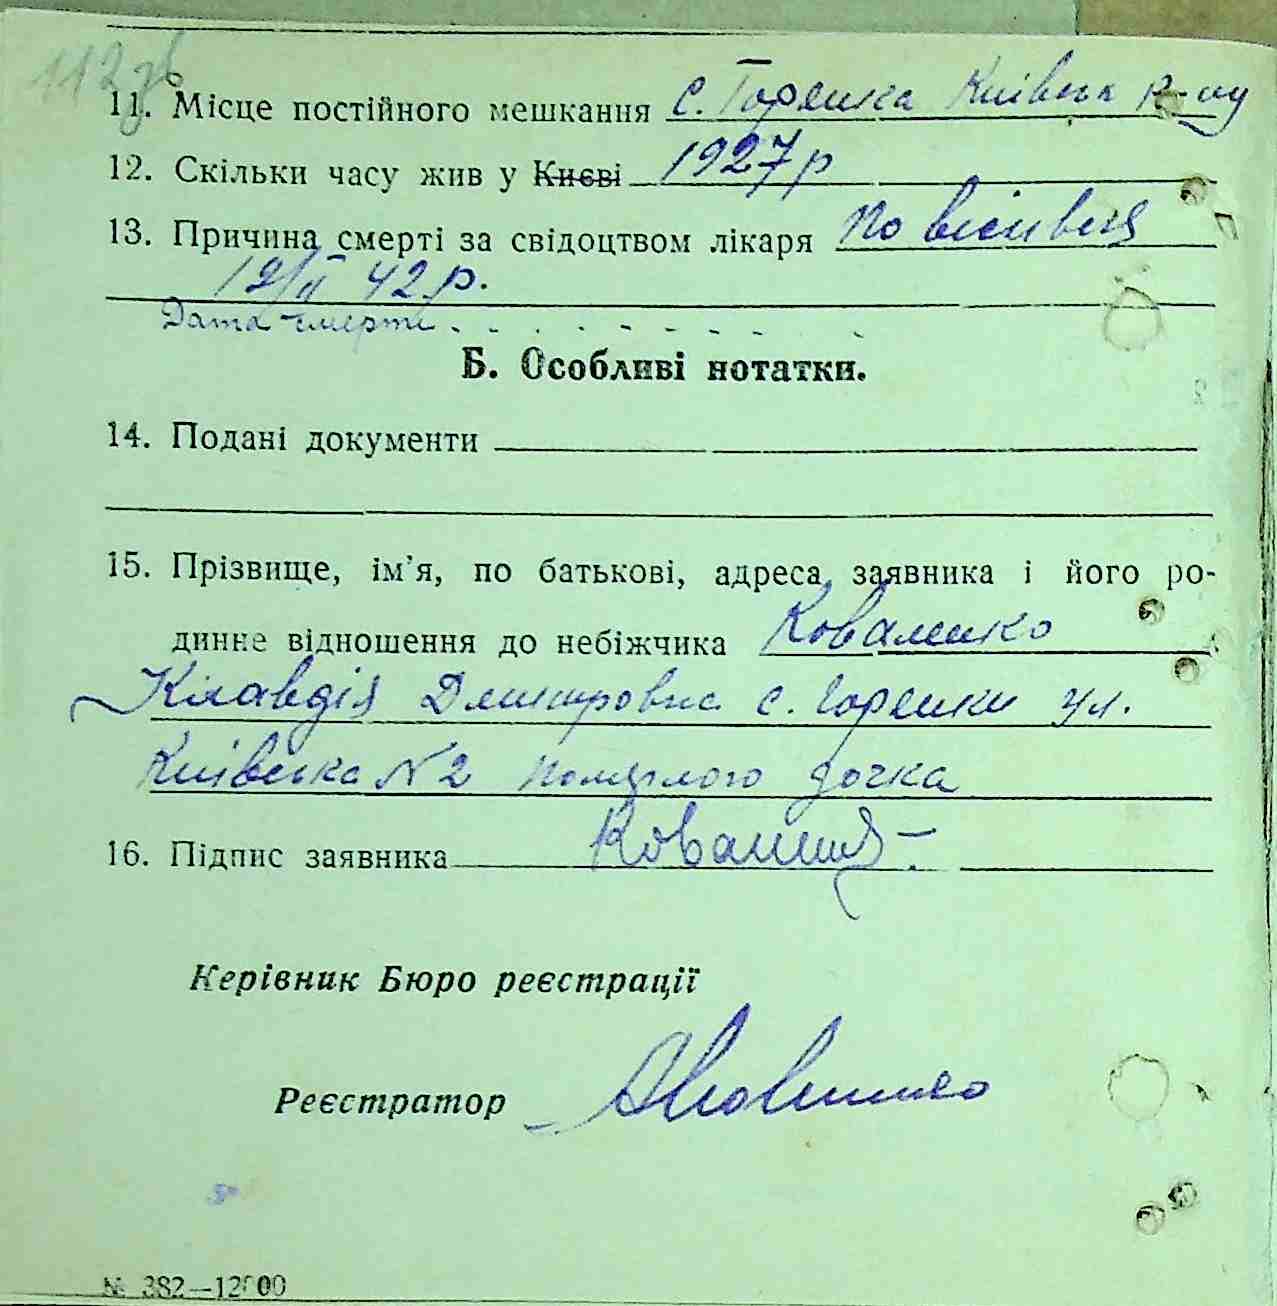 112зв
11. Місце постійного мешкання с. Горенка Київськ р-ну
12. Скільки часу жив у Києві 1927 р
13. Причина смерті за свідоцтвом лікаря
12/II 42 р.
Дата смерти
Б. Особливі нотатки.
14. Подані документи
15. Прізвище, ім'я, по батькові, адреса заявника і його ро-
динне відношення до небіжчика Коваленко
Клавдія Дмитровна с. Горенки ул.
Київська N 2 помэрлого дочка
16. Підпис заявника
Керівник Бюро реєстрації
Реєстратор
№ 382—12000